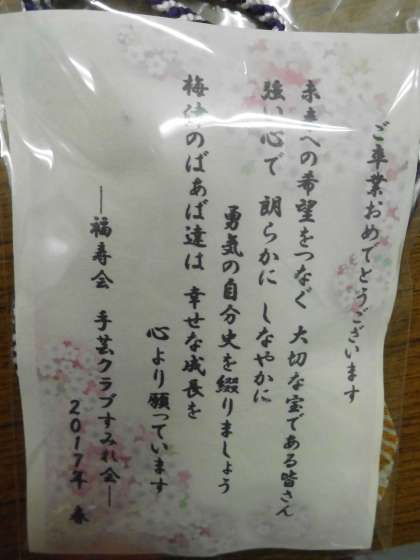 ご卒業おめでとうございます
未来への希望をつなぐ 大切な宝である皆さん
強い心で 朗らかに しなやかに
勇気の自分史を綴りましょう
梅津のばあば達は 幸せな成長を
心より願っています
―福寿会 手芸クラブすみれ会―
2017年 春